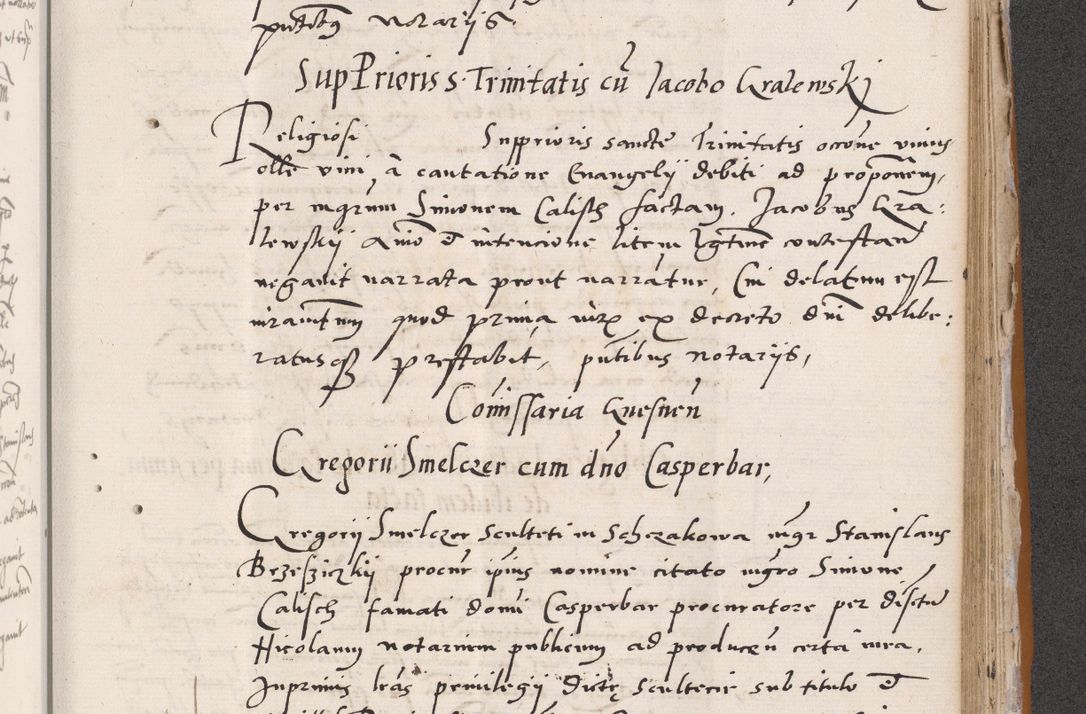 pntibus notariis.
SupPrioris s. Trinitatis cũ Jacobo Gralewskj
Religiosi Supprioris sancte Trinitatis occõne unius
olle vini, a cantatione Evangelij debiti ad proponẽm,
per mgrum Simonem Calisch factam. Jacobus Gra:
lewskij animo et intencione litem Igtime contestan
negavit narrata prout narratur, Cui delatum est
iuramtum quod primã iurẽ ex decreto dni delibe:
ratusqz prestabit, pntibus notarijs,
Comissaria Gnesnen
Gregorii Smelczer cum dno Casperbar,
Gregorij Smelczer sculteti in Schczakowa mgr Stanislaus
Brzesziczkij procur ipius nomine citato mgro Simone
Calisch famati domi Casperbar procuratore per discretũ
Nicolaum notarium publicum ad producẽn certa iura,
Inprimis lrãs privilegij dictę scultecie sub titulo et